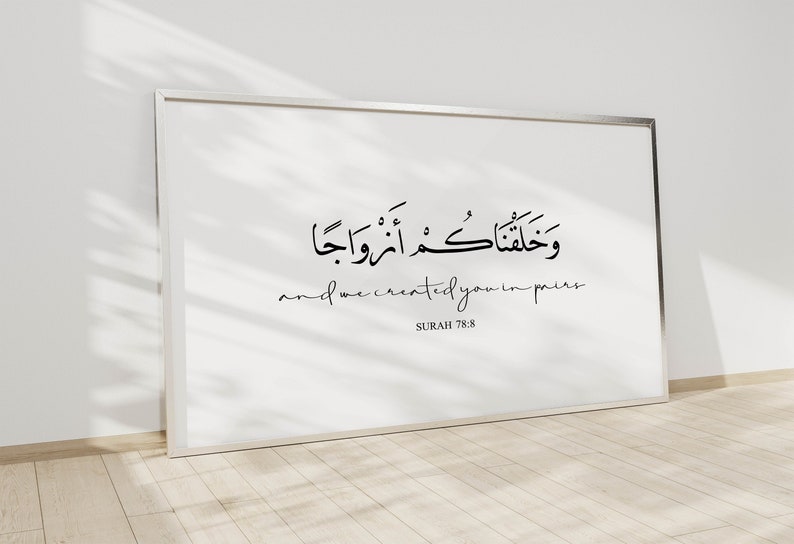 وَخَلَقْنَاكُمْ أَزْوَاجًا
and we created you in pairs
SURAH 78:8